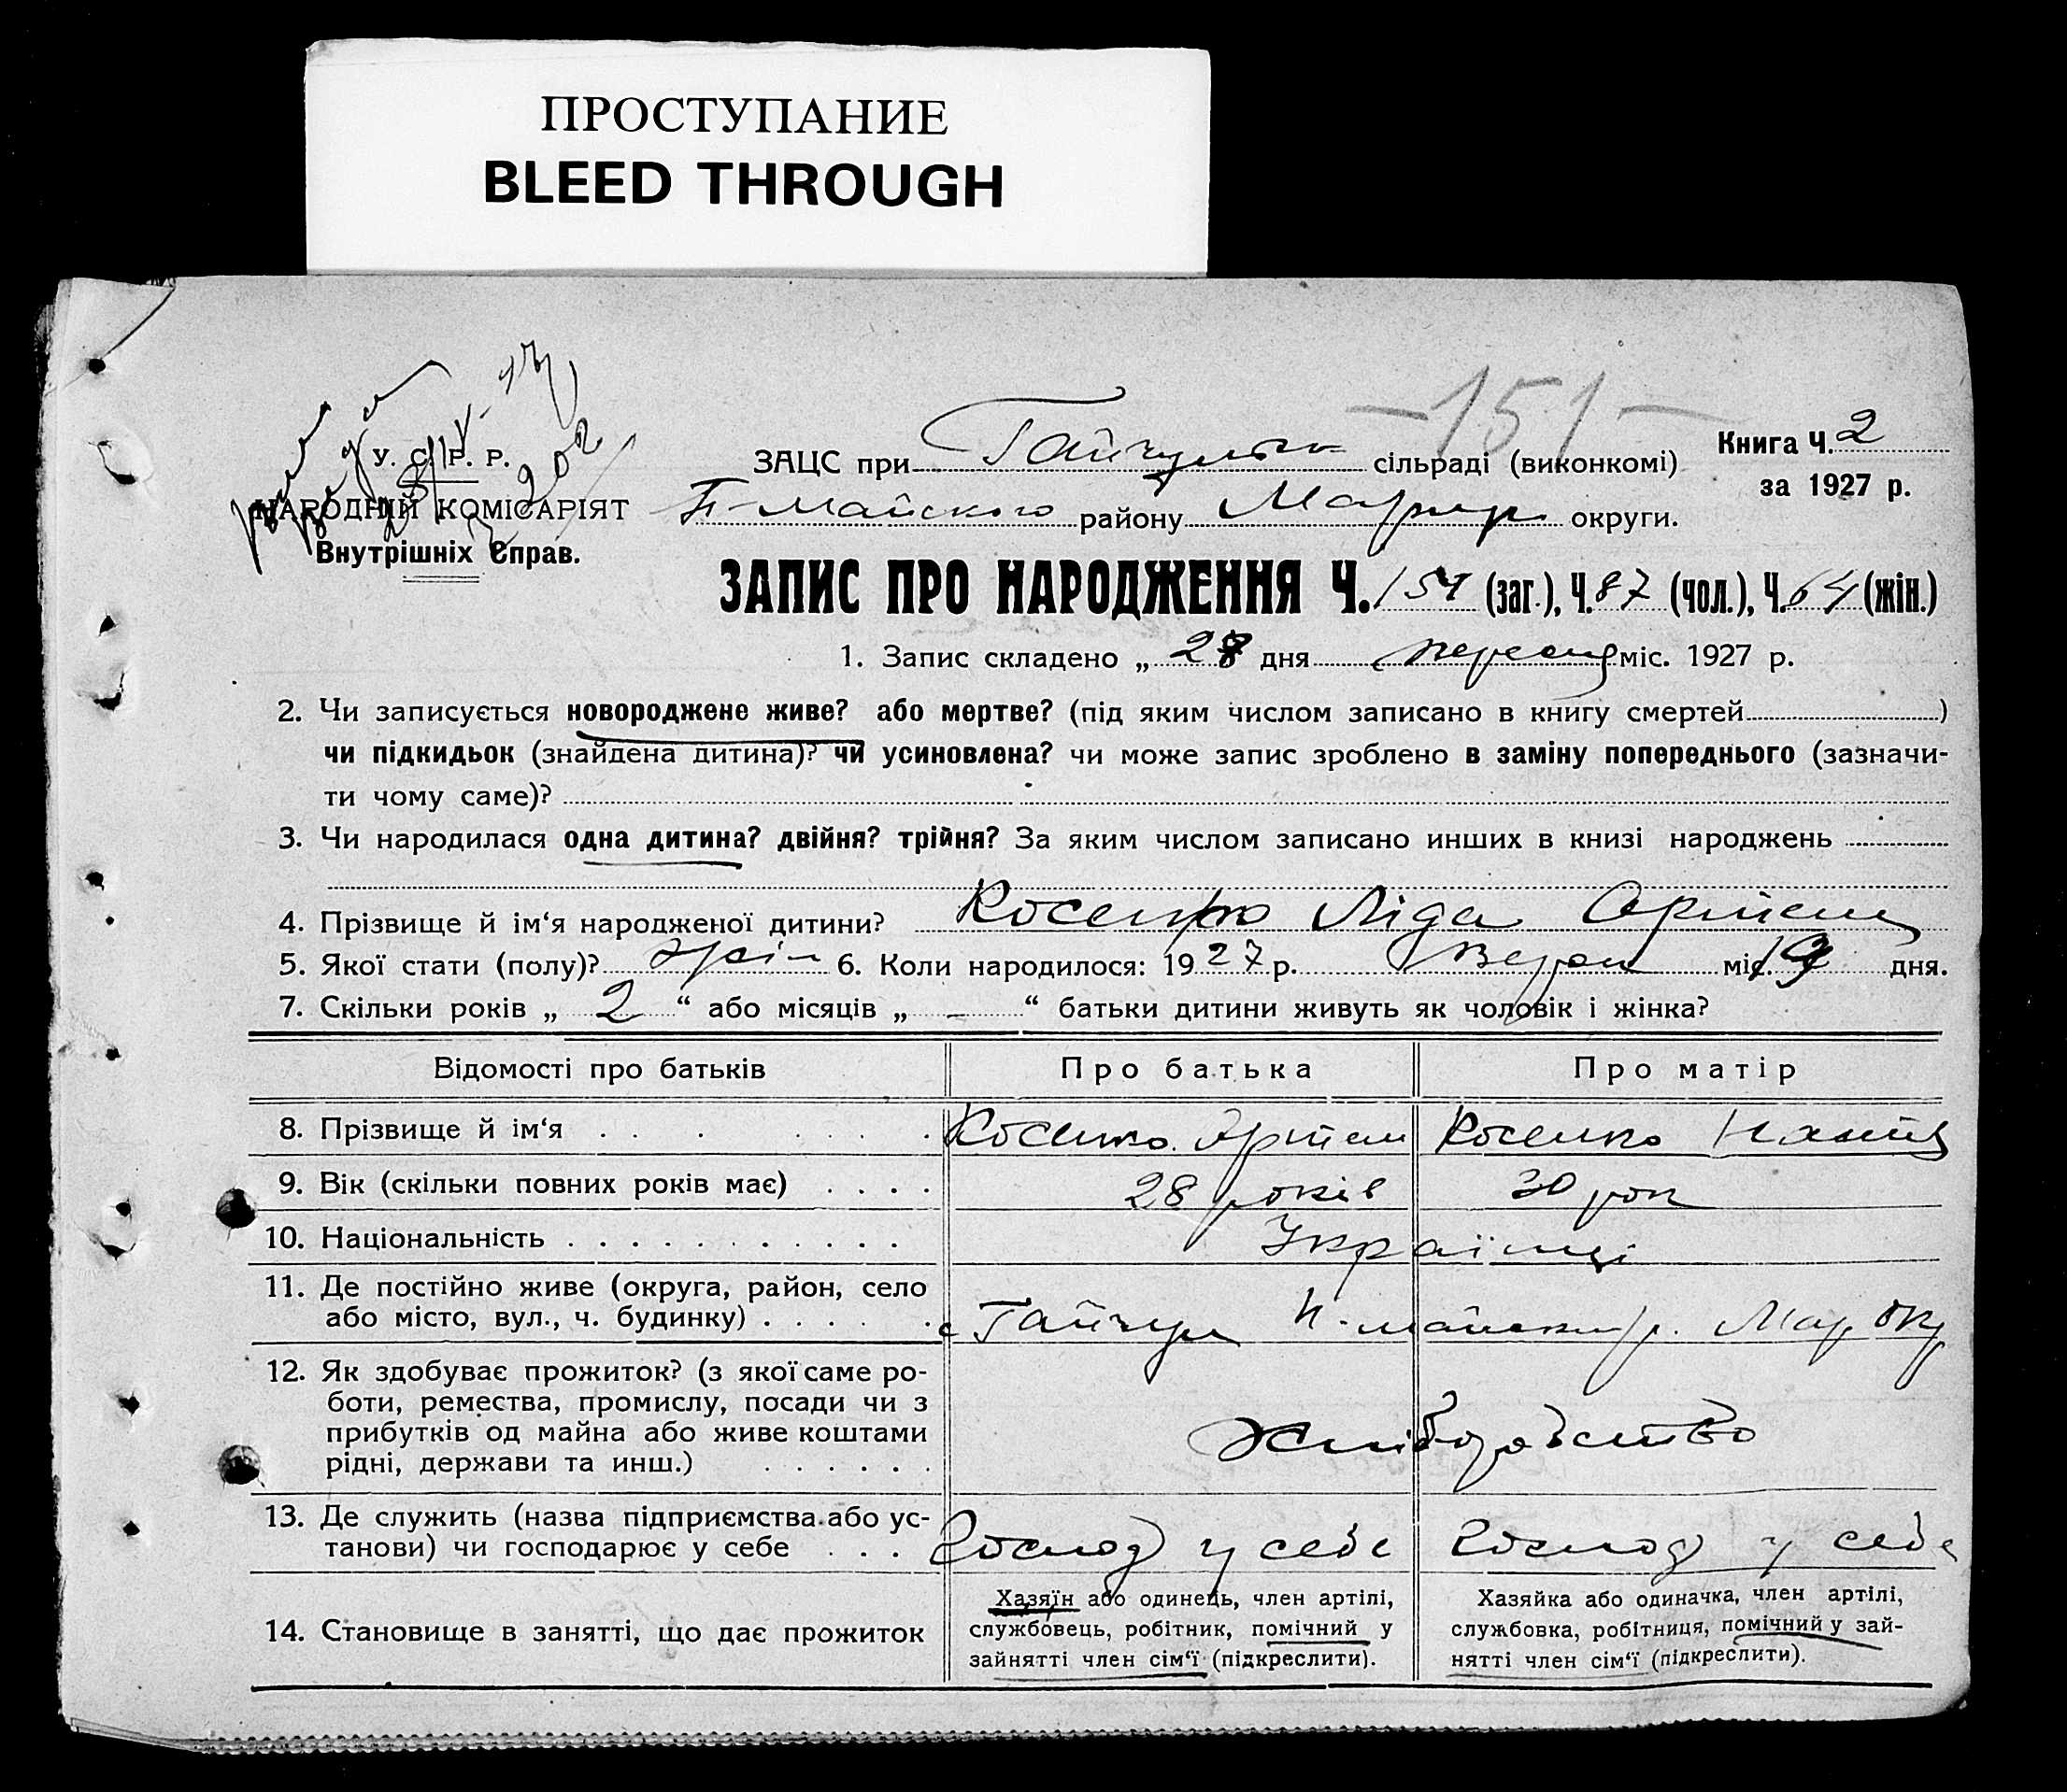 ПРОСТУПАНИЕ
BLEED THROUGH
-151-
У. С. Р. Р.
НАРОДНІЙ КОМІСАРІЯТ
Внутрішніх Справ.
ЗАЦС при Гайчульск сільраді (виконкомі)
Книга Ч. 2
за 1927 р.
П-майского району Маріуп округи.
ЗАПИС ПРО НАРОДЖЕННЯ Ч. 151 (заг.), Ч. 87 (чол.), Ч. 64 (жін.)
1. Запис складено „ 28 дня вересня міс. 1927 р.
2. Чи записується новороджене живе? або мертве? (під яким числом записано в книгу смертей )
чи підкидьок (знайдена дитина)? чи усиновлена? чи може запис зроблено в заміну попереднього (зазначи-
ти чому саме)?
3. Чи народилася одна дитина? двійня? трійня? За яким числом записано инших в книзі народжень
4. Прізвище й ім‘я народженої дитини? Косенко Ліда Артем
5. Якої стати (полу)? жін 6. Коли народилося: 1927 р. Верес міс. 19 дня.
7. Скільки років „ 2 “ або місяців „ - “ батьки дитини живуть як чоловік і жінка?
Відомості про батьків Про батька Про матір
8. Прізвище й ім‘я . . . . . . . . Косенко Артем Косенко
9. Вік (скільки повних років має) . . . . 28 років 30 рок
10. Національність . . . . . . . . . . . . Українці
11. Де постійно живе (округа, район, село
або місто, вул., ч. будинку) . . . . . . с Гайчул П-майски р. Мар. окр
12. Як здобуває прожиток? (з якої саме ро-
боти, ремества, промислу, посади чи з
прибутків од майна або живе коштами
рідні, держави та инш.) . . . . . .
Хліборобство
13. Де служить (назва підприємства або ус-
танови) чи господарює у себе . . . Господ у себе Господ у себе
14. Становище в занятті, що дає прожиток
Хазяїн або одинець, член артілі,
службовець, робітник, помічний у
зайнятті член сім‘ї (підкреслити).
Хазяйка або одиначка, член артілі,
службовка, робітниця, помічний у зай-
нятті член сім‘ї (підкреслити).